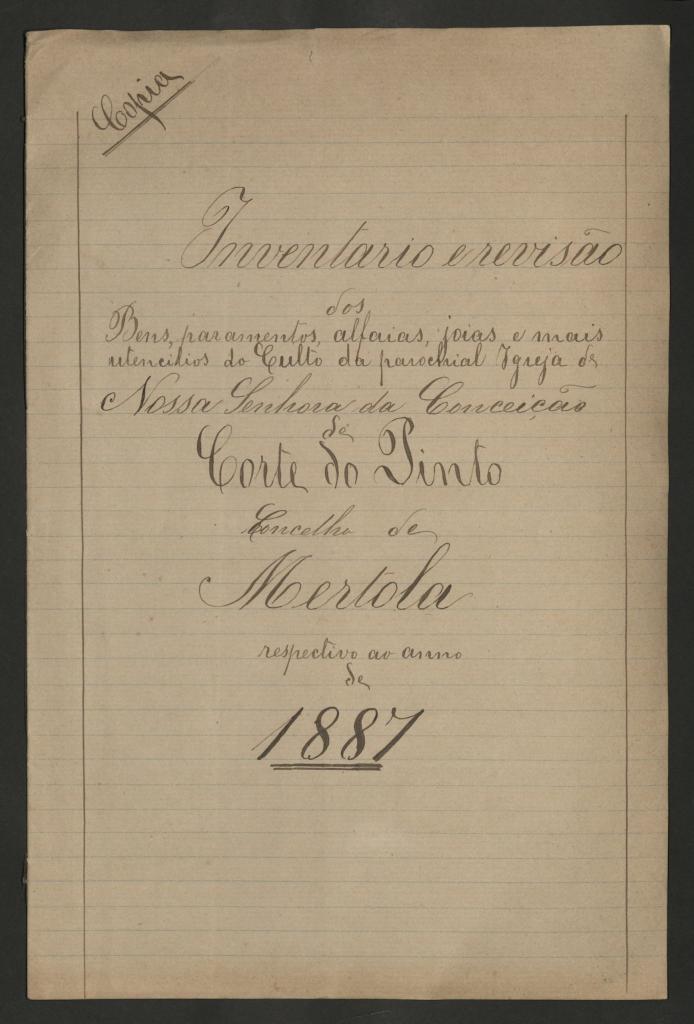 Copia
Inventario e revisão
dos
Bens, paramentos, alfaias, joias e mais
utencilios do Culto da parochial Igreja de
Nossa Senhora da Conceição
de
Corte do Pinto
Concelho de
Mertola
respectivo ao anno
de
1887